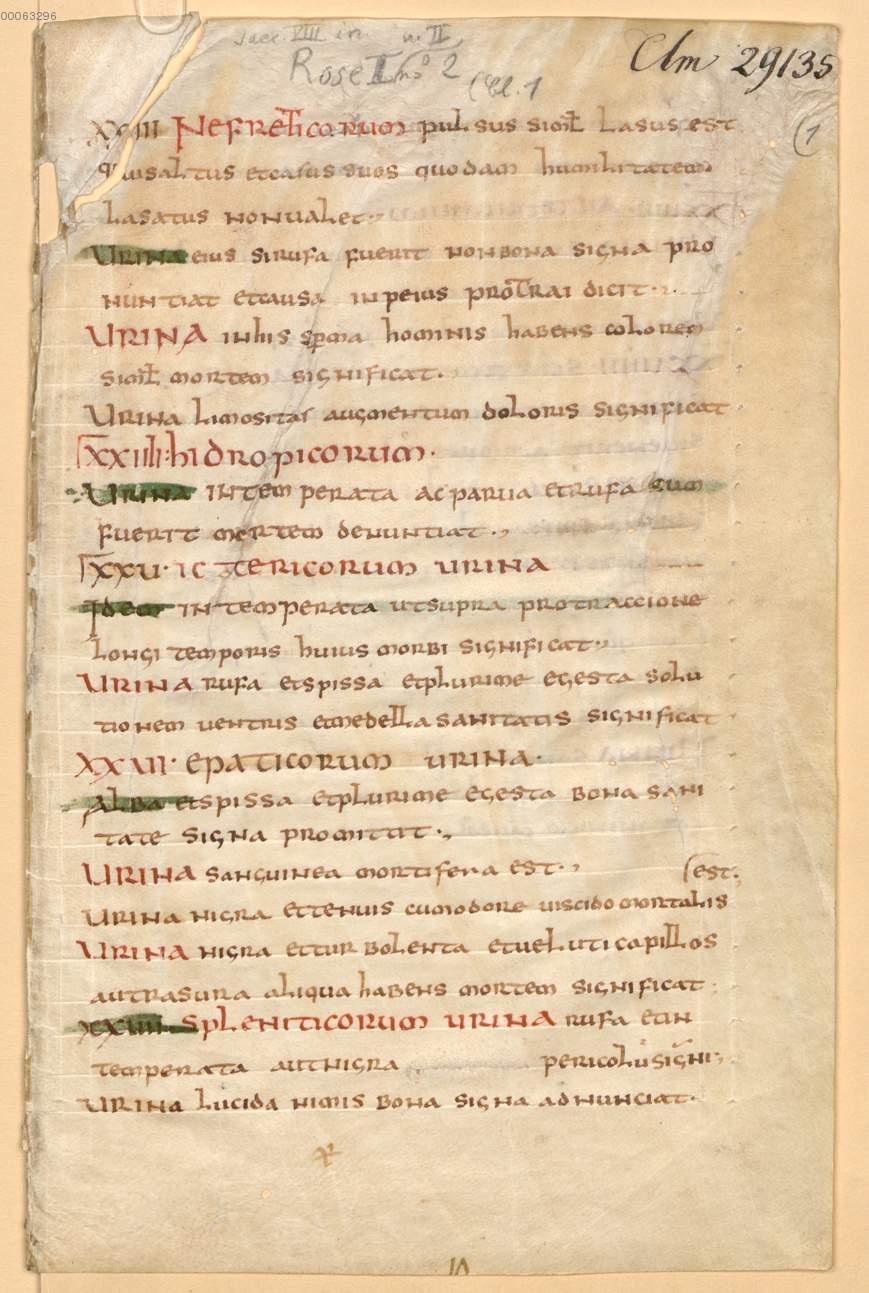 00063296
saec. VIIII in. n. II,
Rose II no 2
Clm 29135
(Cl. 1
(1
XXIII Nefreticorum pulsus simil lasus est
saltus etcasus suos quodam humilitatem
lasatus nonualet.,
Urina eius sirufa fuerit nonbona signa pro
nuntiat etcausa inpeius protrai dicit.
URINA inhis sperma hominis habens colorem
simil mortem significat.
Urina limositas augmentum doloris significat
XXIIII. hidropicorum.
Urina intemperata acparua etrufa cum
fuerit mortem denuntiat.,
XXV. ictericorum urina
Idem intemperata utsupra protraccione
longi temporis huius morbi significat.,
Urina rufa etspissa etplurime egesta solu
tionem uentris etmedella sanitatis significat
XXVII. epaticorum urina.
Alba etspissa etplurime egesta bona sani
tate signa promittit.,
Urina sanguinea mortifera est.,
(est.,
Urina nigra ettenuis cumodore uiscido mortalis
Urina nigra etturbolenta etueluti capillos
autrasura aliqua habens mortem significat.
XXVIIII. Spleniticorum urina rufa etin
temperata autnigra pericolu signi.,
Urina lucida nimis bona signa adnunciat.